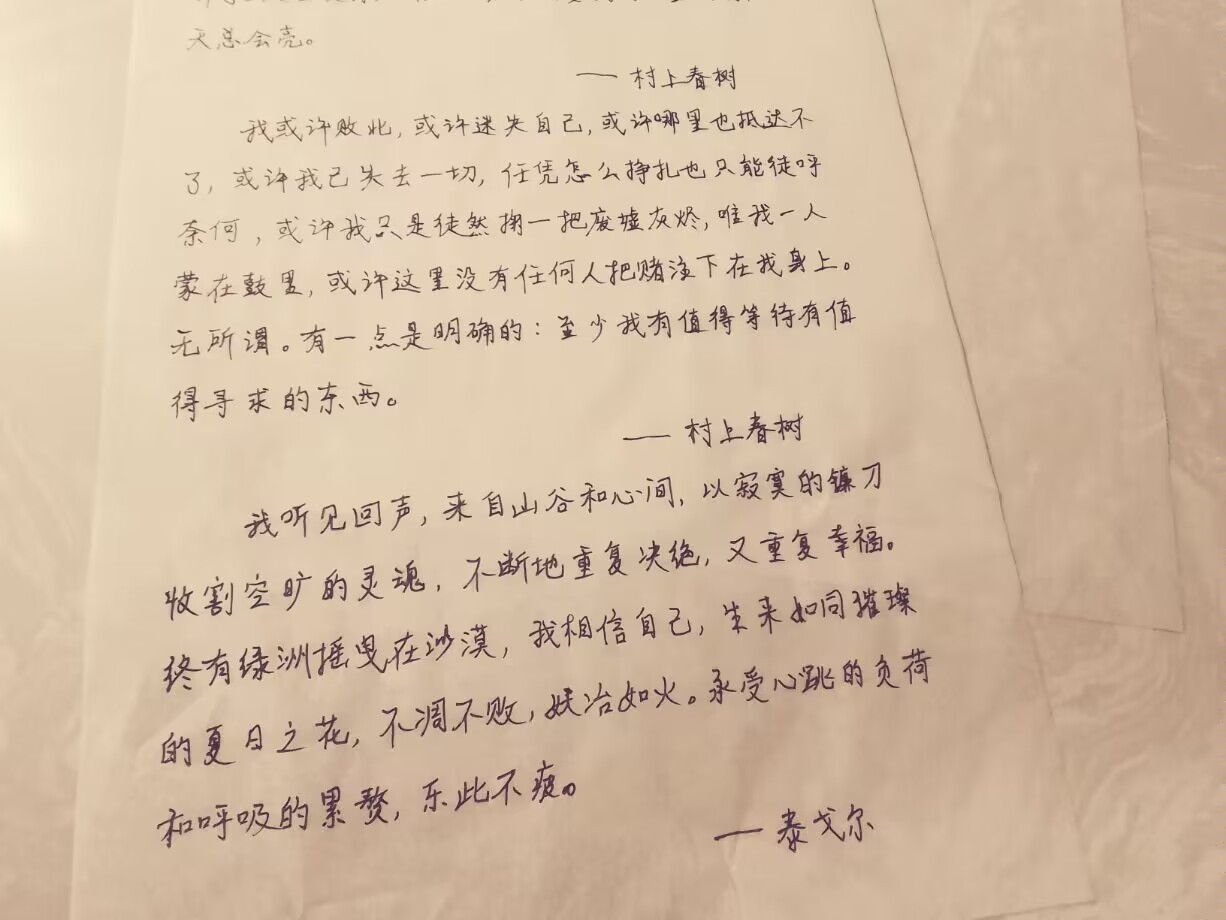 天总会亮。
—— 村上春树
我或许败北，或许迷失自己，或许哪里也抵达不
了，或许我已失去一切，任凭怎么挣扎也只能徒呼
奈何，或许我只是徒然掬一把废墟灰烬，唯我一人
蒙在鼓里，或许这里没有任何人把赌注下在我身上。
无所谓。有一点是明确的：至少我有值得等待有值
得寻求的东西。
—— 村上春树
我听见回声，来自山谷和心间，以寂寞的镰刀
收割空旷的灵魂，不断地重复决绝，又重复幸福。
终有绿洲摇曳在沙漠，我相信自己，生来如同璀璨
的夏日之花，不凋不败，妖冶如火。承受心跳的负荷
和呼吸的累赘，乐此不疲。
—— 泰戈尔